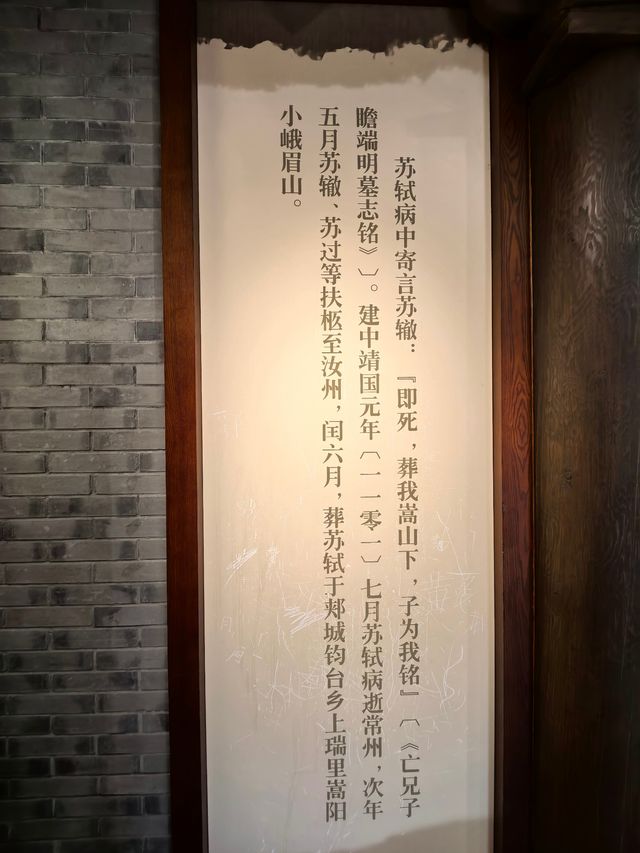 苏轼病中寄言苏辙：『即死，葬我嵩山下，子为我铭』〔《亡兄子
瞻端明墓志铭》〕。建中靖国元年〔一一零一〕七月苏轼病逝常州，次年
五月苏辙、苏过等扶柩至汝州，闰六月，葬苏轼于郏城钧台乡上瑞里嵩阳
小峨眉山。